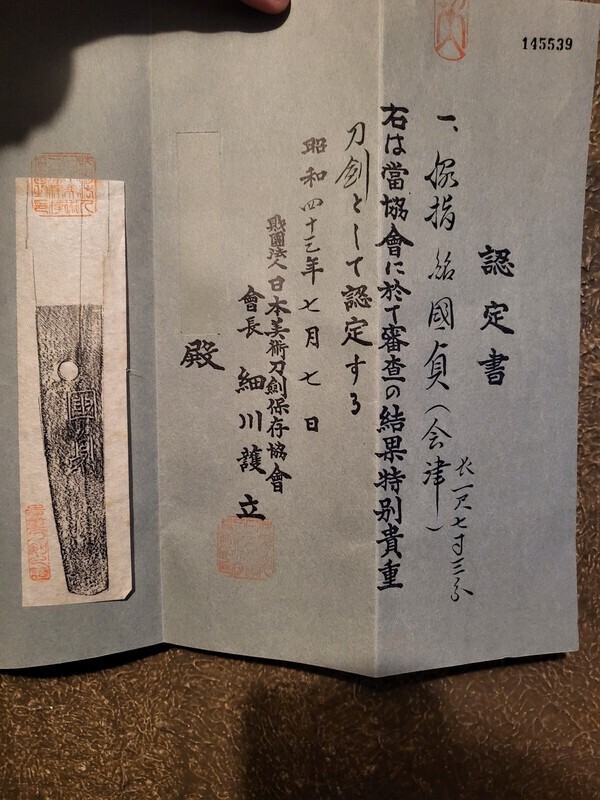 145539
認定書
一、脇指 銘 國貞（会津）
長一尺七寸三分
右は當協會に於て審査の結果特別貴重
刀劍として認定する
昭和四十三年七月七日
財團法人日本美術刀劍保存協會
會長 細川護立
殿
國貞